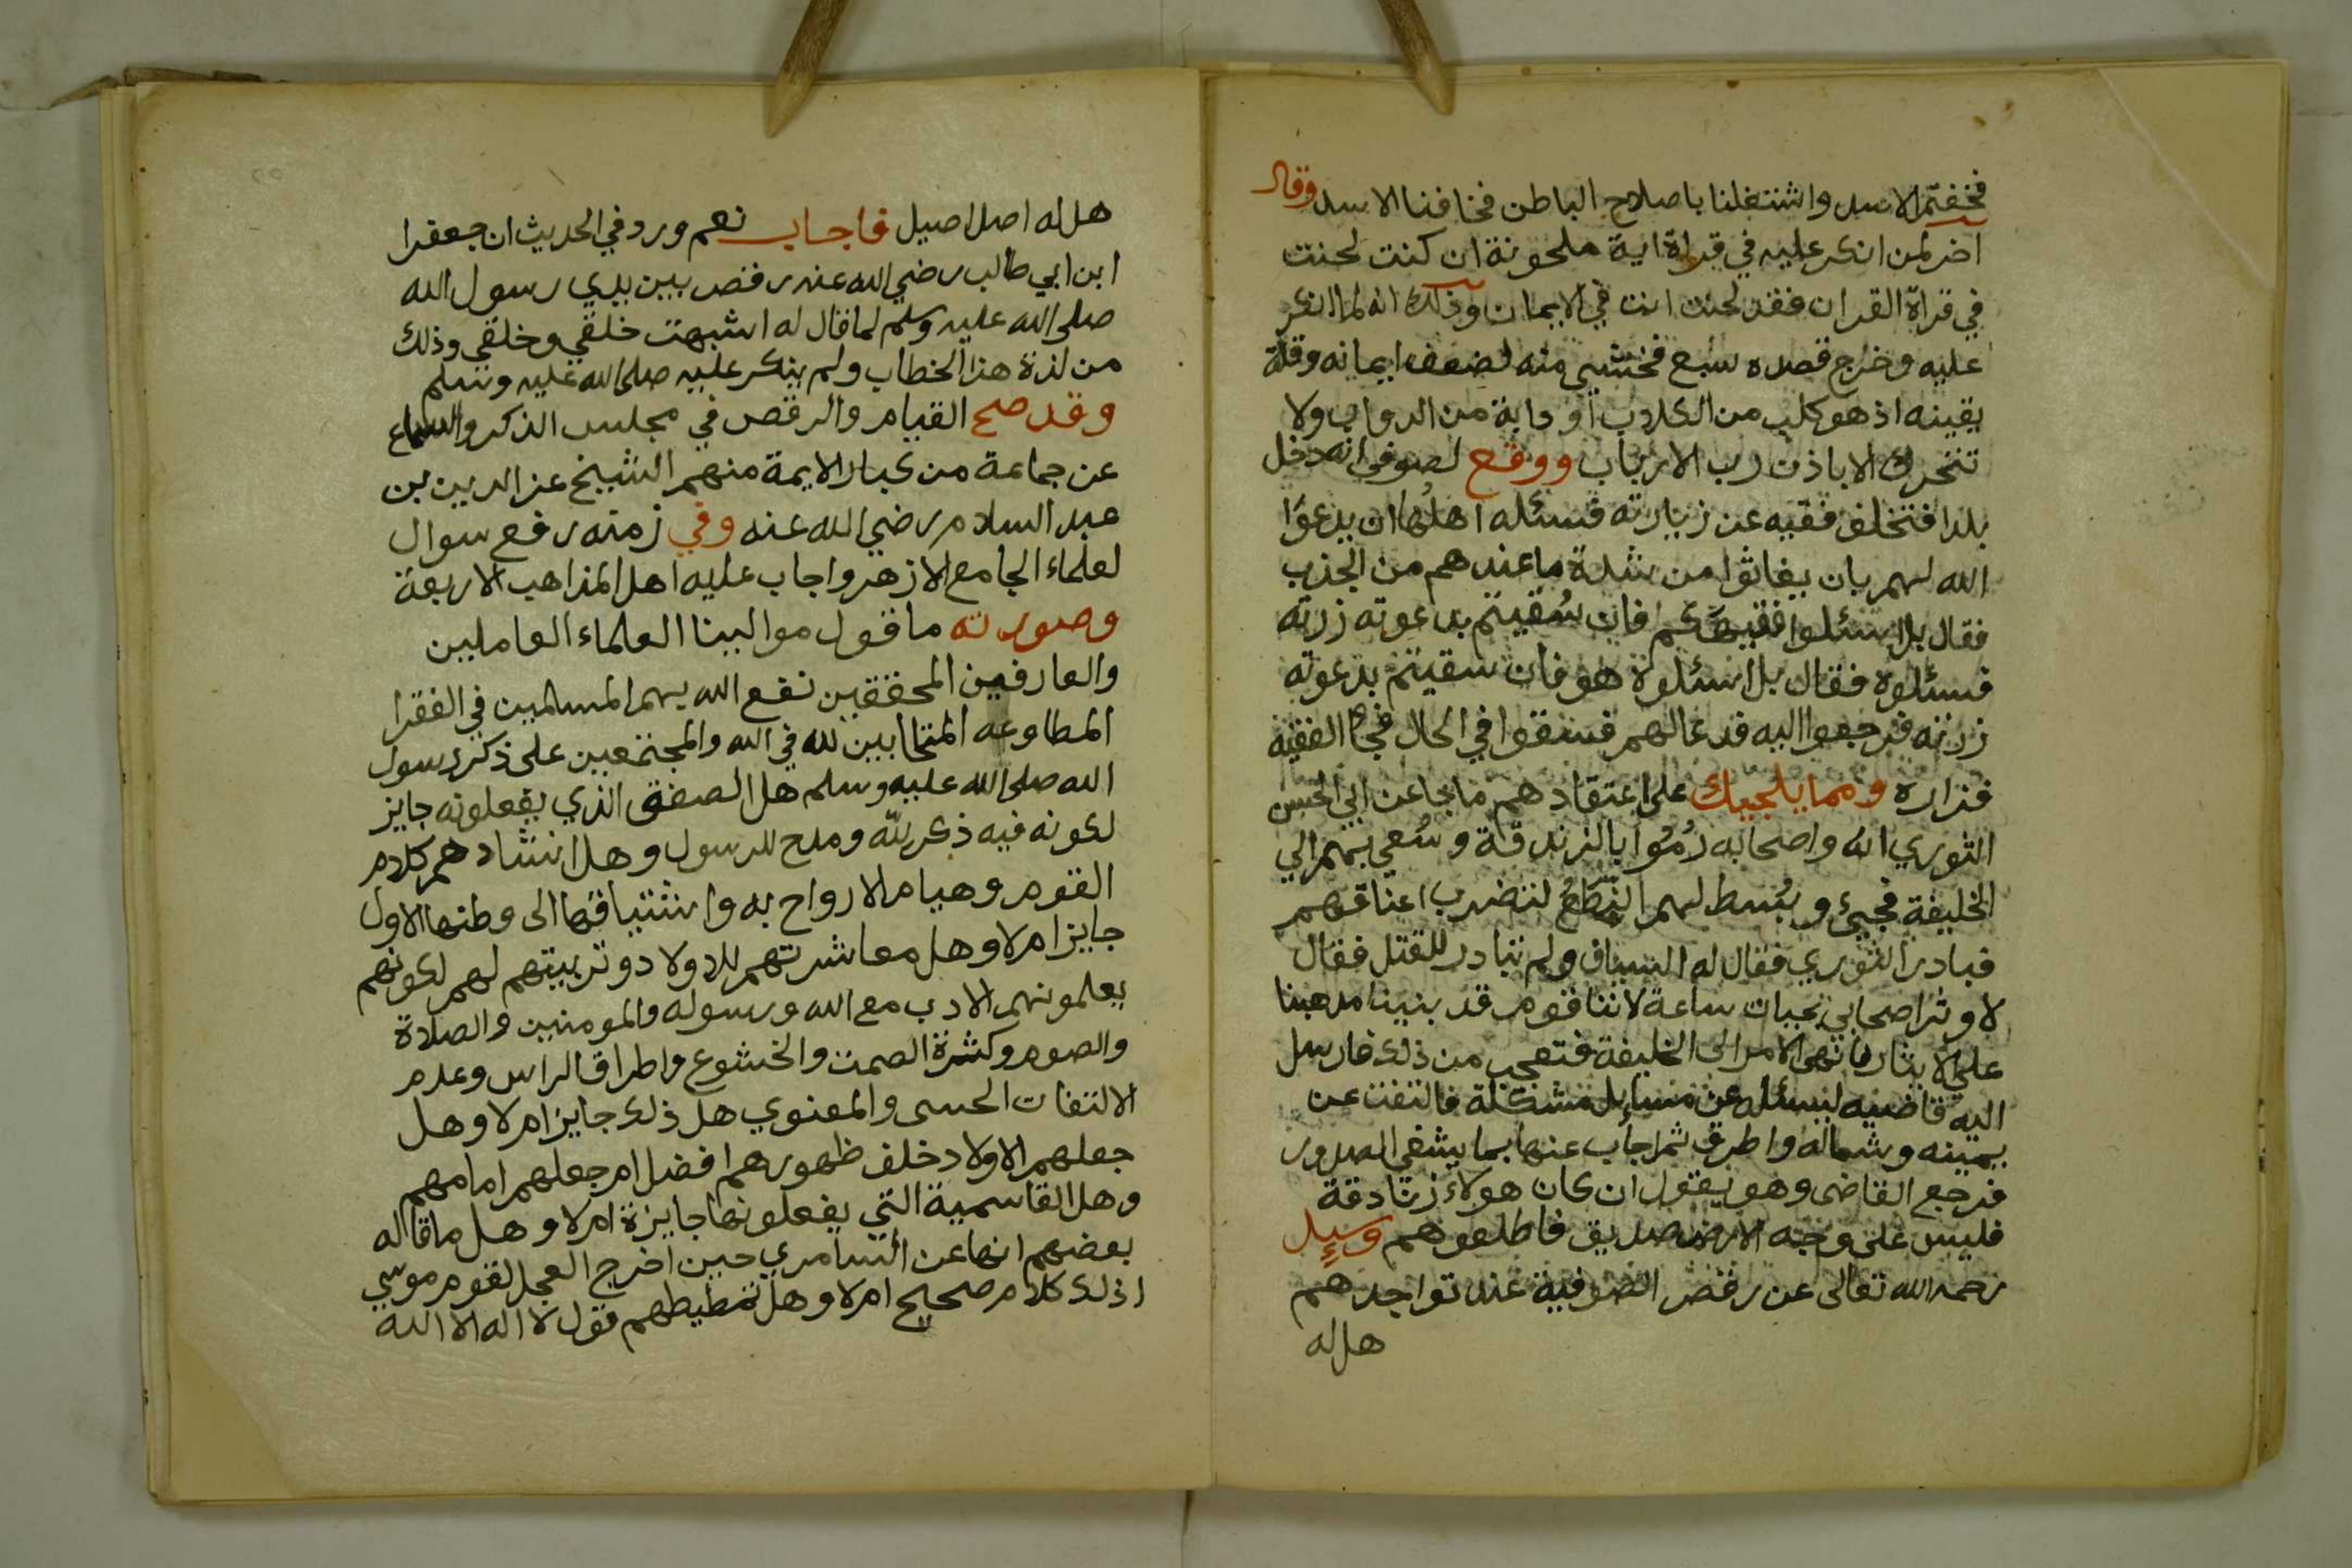 فخفتم الاسد واشتغلنا باصلاح الباطن فخافنا الاسد وقال
اخر لمن انكر عليه في قراة اية ملحونة ان كنت لحنت
في قراة القران فقد لحنت انت في الايمان وذلك انه لما انكر
عليه وخرج قصده سبع فخشي منه لضعف ايمانه وقلة
يقينه اذ هو كلب من الكلاب او دابة من الدواب ولا
تتحرك الا باذن رب الارباب ووقع لصوفي انه دخل
بلدا فتخلف فقيه عن زيارته فسئله اهلها ان يدعوا
الله لهم بان يغاثوا من شدة ما عندهم من الجذب
فقال بل اسئلوا فقيهكم فان سقيتم بدعوته زرته
فسئلوه فقال بل اسئلوه هو فان سقيتم بدعوته
زرته فرجعوا اليه فدعا لهم فسقوا في الحال فجا الفقيه
فزاره ومما يلجيك على اعتقادهم ما جا عن ابي الحسن
الثوري انه واصحابه رموا بالزندقة وسعي بهم الي
الخليفة فجيء وبسط لهم النطع لتضرب اعناقهم
فبادر الثوري فقال له السياف ولم تبادر للقتل فقال
لاوثر اصحابي بحيات ساعة لاننا قوم قد بنينا مدهبنا
على الايثار فانهى الامر الى الخليفة فتعجب من ذلك فارسل
اليه قاضيه ليسئله عن مسايل مشكلة فالتفت عن
يمينه وشماله واطرق ثم اجاب عنها بما يشفي الصدور
فرجع القاضى وهو يقول ان كان هولاء زنادقة
فليس على وجه الارض صديق فاطلعوهم وسيل
رحمه الله تعالى عن رقص الصوفية عند تواجدهم
هل له
هل له اصل اصيل فاجاب نعم ورد في الحديث ان جعفرا
ابن ابي طالب رضي الله عنه رقص بين يدي رسول الله
صلى الله عليه وسلم لما قال له اشبهت خلقي وخلقي وذلك
من لذة هذا الخطاب ولم ينكر عليه صلى الله عليه وسلم
وقد صح القيام والرقص في مجلس الذكر والسماع
عن جماعة من كبار الايمة منهم الشيخ عز الدين بن
عبد السلام رضي الله عنه وفي زمنه رفع سوال
لعلماء الجامع الازهر واجاب عليه اهل المذاهب الاربعة
وصورته ما قول موالينا العلماء العاملين
والعارفين المحققين نفع الله بهم المسلمين في الفقرا
المطاوعه المتحابين لله في الله والمجتمعين على ذكر رسول
الله صلى الله عليه وسلم هل الصفق الذي يفعلونه جايز
لكونه فيه ذكر لله ومدح للرسول وهل انشادهم كلام
القوم وهيام الارواح به واشتياقها الى وطنها الاول
جايز ام لا وهل معاشرتهم للاولاد وتربيتهم لهم لكونهم
يعلمونهم الادب مع الله ورسوله والمومنين والصلاة
والصوم وكثرة الصمت والخشوع واطراق الراس وعدم
الالتفات الحسى والمعنوي هل ذلك جايز ام لا وهل
جعلهم الاولاد خلف ظهورهم افضل ام جعلهم امامهم
وهل القاسمية التي يفعلونها جايزة ام لا وهل ما قاله
بعضهم انها عن السامري حين اخرج العجل لقوم موسي
اذلك كلام صحيح ام لا وهل تمطيطهم قول لا اله الا الله